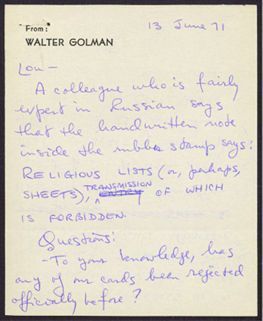 From:
WALTER GOLMAN
13 June 71
Lou-
A colleague who is fairly
expert in Russian says
that the handwritten note
inside the rubber stamp says:
RELIGIOUS LISTS (or, perhaps,
SHEETS), TRANSMISSION OF WHICH
IS FORBIDDEN.
Questions:
-To your knowledge, has
any of our cards been rejected
officially before?